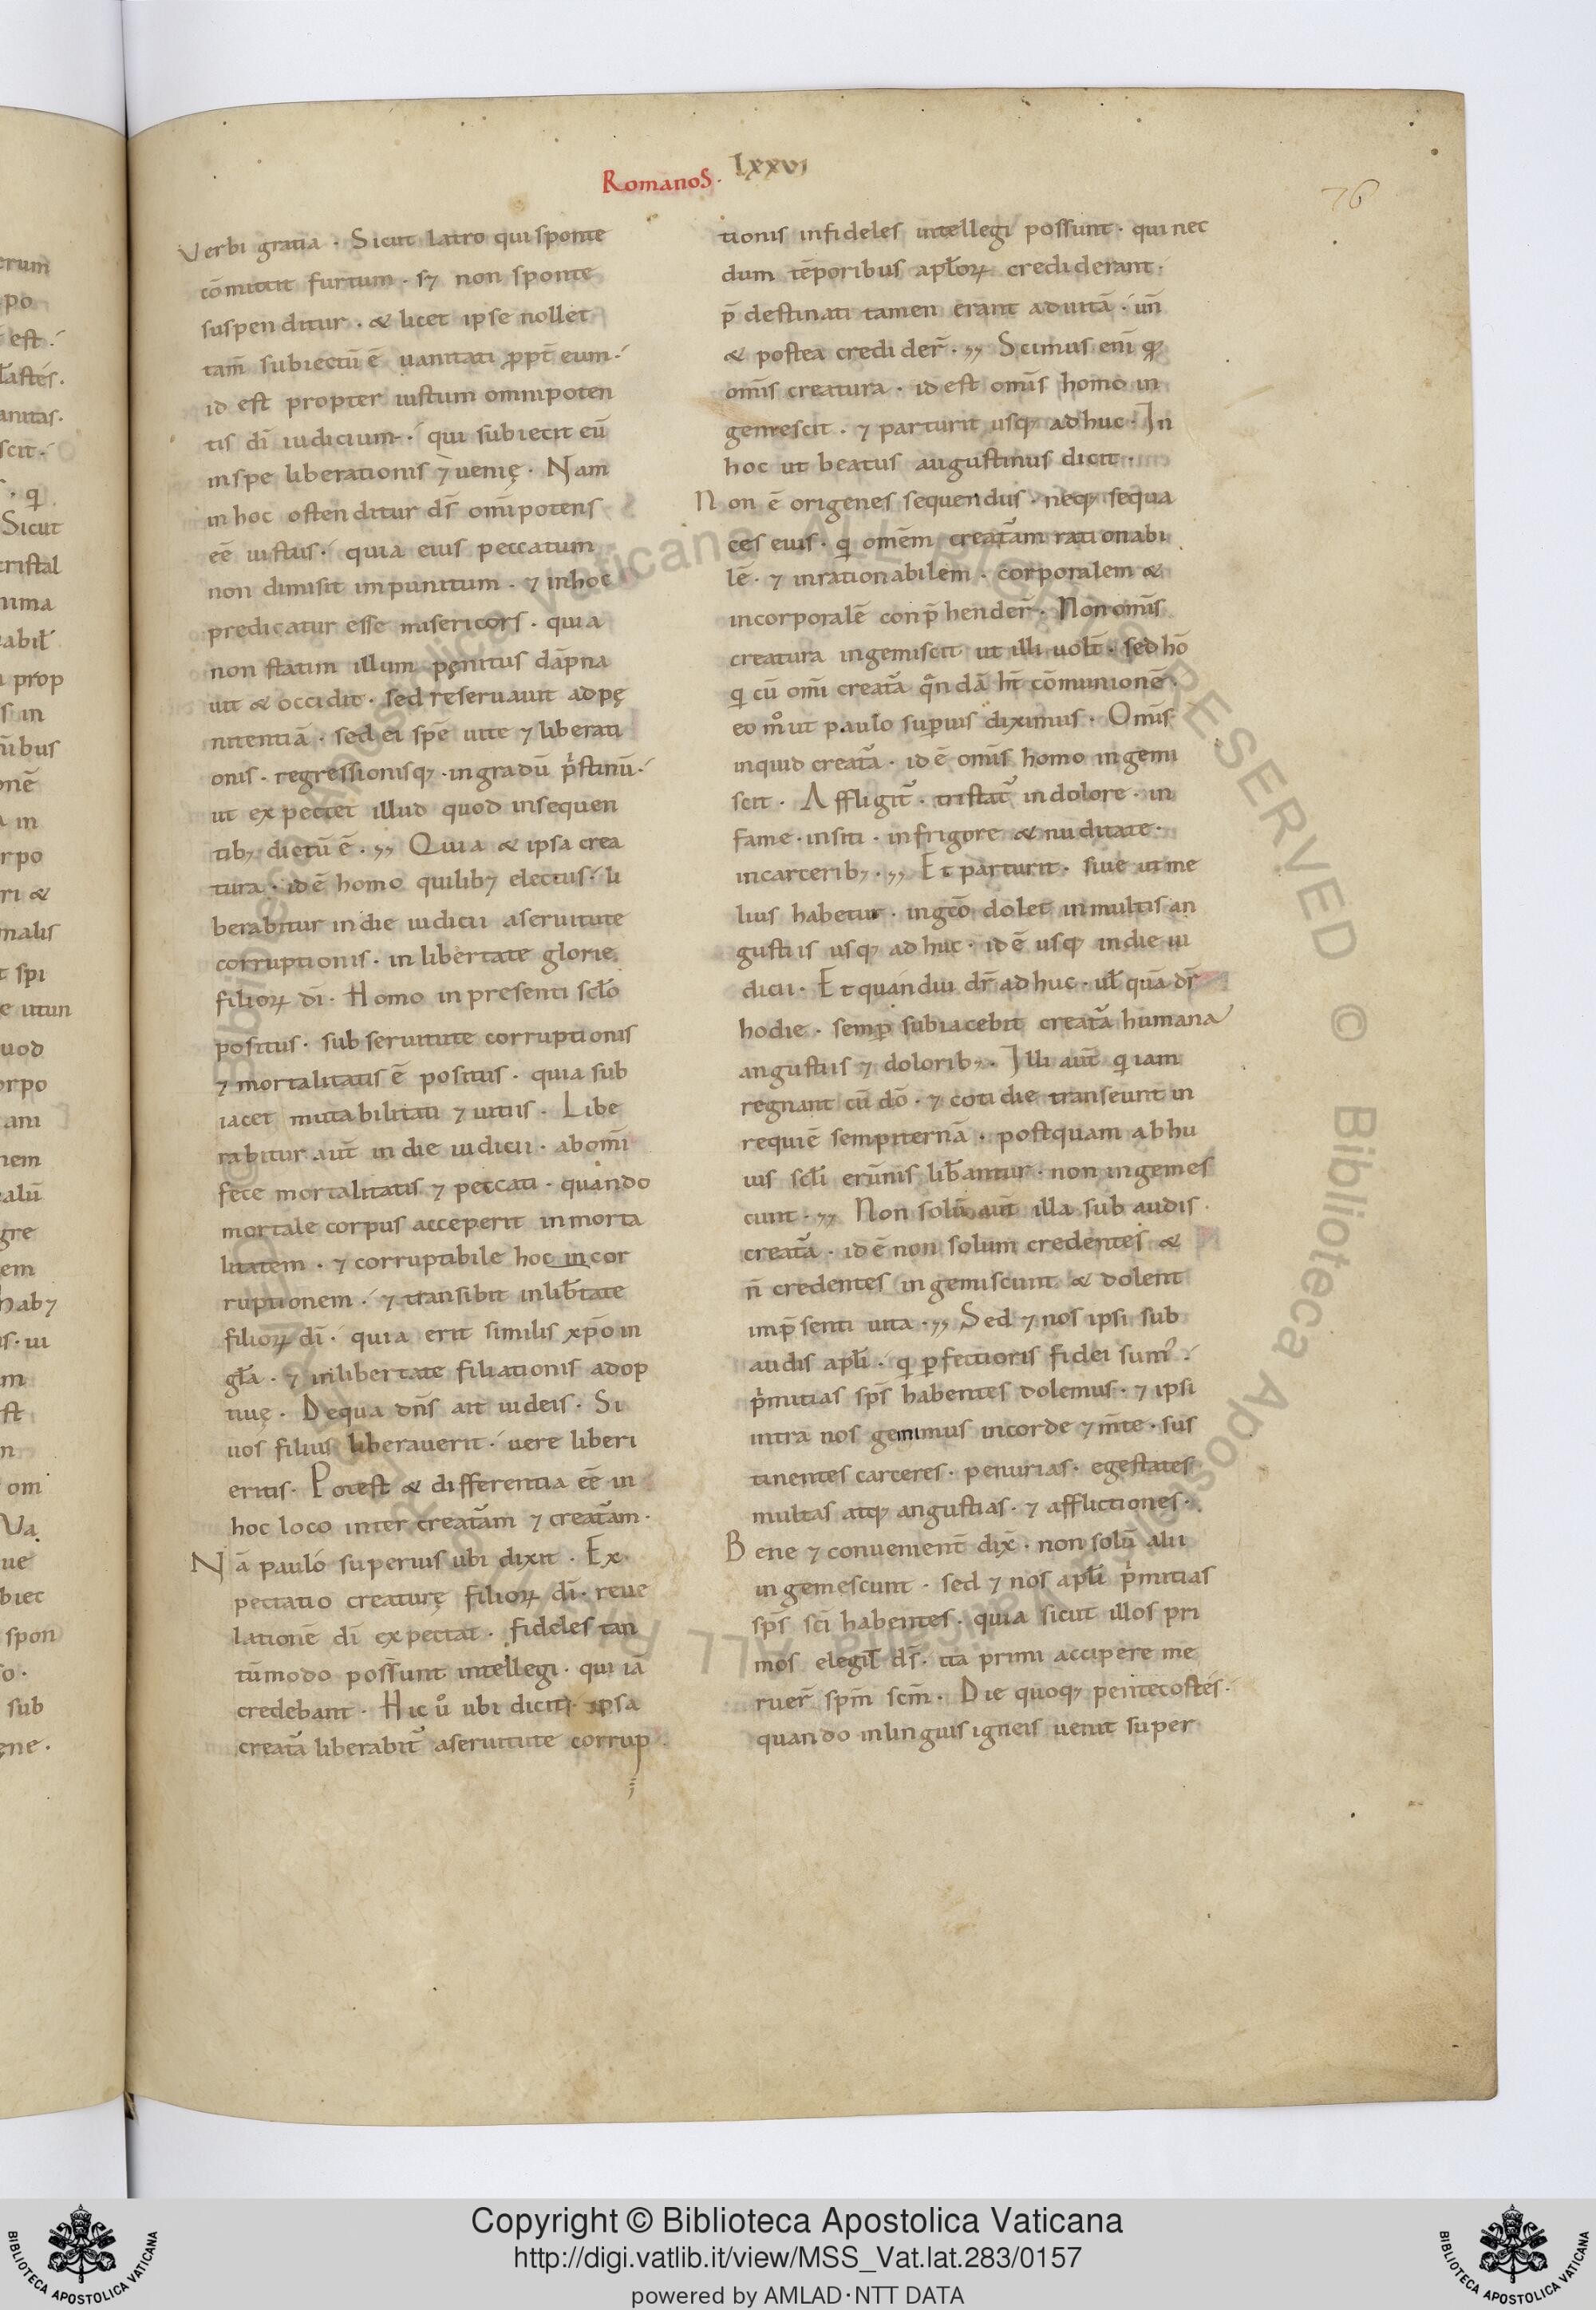 Romanos. Lxxvi
76
Verbi gratia · Sicut latro qui sponte
cōmittit furtum · sꝫ non sponte
suspenditur · & licet ipse nollet
tam̄ subiectū ē uanitati ꝓpt̄ eum ·
id est propter iustum omnipoten
tis dī iudicium · qui subiecit eū
in spe liberationis ⁊ uenię · Nam
in hoc ostenditur ds̄ om̄ipotens
eē iustus · quia eius peccatum
non dimisit impunitum · ⁊ in hoc
predicatur esse misericors · quia
non statim illum pęnitus dāpna
uit & occidit · sed reseruauit ad pę
nitentiā · sed ei spē uite ⁊ liberati
onis · regressionisqꝫ · in gradū p̍stinū ·
ut expectet illud quod in sequen
tibꝫ dictū ē · Quia & ipsa crea
tura · id ē homo quilibꝫ electus · li
berabitur in die iudicii a seruitute
corruptionis · in libertate glorie
filioꝝ dī · Homo in presenti scl̄o
positus · sub seruitute corruptionis
⁊ mortalitatis ē positus · quia sub
iacet mutabilitati ⁊ uitiis · Libe
rabitur aut̄ in die iudicii · ab om̄i
fece mortalitatis ⁊ peccati · quando
mortale corpus acceperit inmorta
litatem · ⁊ corruptibile hoc incor
ruptionem · ⁊ transibit in lib̄tate
filioꝝ dī · quia erit similis xp̄o in
gl̄a · ⁊ in libertate filiationis adop
tiuę · De qua dn̄s ait iudeis · Si
uos filius liberauerit · uere liberi
eritis · Potest & differentia eē in
hoc loco inter creat᷑am ⁊ creat᷑am ·
Nā paulo superius ubi dixit · Ex
pectatio creaturę filioꝝ dī · reue
latione dī expectat · fideles tan
tūmodo possunt intellegi · qui iā
credebant · Hic ů ubi dicit · ipsa
creat᷑a liberabit᷑ a seruitute corrup
tionis infideles intellegi possunt · qui nec
dum tēporibus apl̄oꝝ crediderant ·
p̄destinati tamen erant ad uitā · un̄
& postea credider̄ · Scimus eni᷑ qꝫ
om̄is creatura · id est om̄is homo in
gemescit · ⁊ parturit usqꝫ adhuc · In
hoc ut beatus augustinus dicit ·
Non ē origenes sequendus · neqꝫ sequa
ces eius · qͥ omēm creat᷑am rationabi
lē · ⁊ inrationabilem · corporalem &
incorporalē conp̄hender̄ · Non om̄is
creatura ingemiscit ut illi uol̄t · sed hō
qͥ cū om̄i creat᷑a qͣndā h̄t cōmunionē ·
eo mͦ ut paulo suꝑius diximus · Om̄is
inquid creat᷑a · id ē om̄is homo ingemi
scit · Affligit᷑ · tristat᷑ in dolore · in
fame · in siti · in frigore & nuditate ·
in carceribꝫ · Et parturit · siue ut me
lius habetur · ingc̄o dolet in multis an
gustiis usqꝫ ad huc · id ē usqꝫ in die iu
dicii · Et quandiu dr̄ adhuc · ul̄ quā dr̄
hodie · semꝑ subiacebit creat᷑a humana
angustiis ⁊ doloribꝫ · Illi aut̄ qͥ iam
regnant cū dō · ⁊ cotidie transeunt in
requiē sempiternā · postquam ab hu
ius scl̄i erūnis lib̄antur · non ingemes
cunt · Non solū aut̄ illa subaudis
creat᷑a · id ē non solum credentes &
n̄ credentes ingemiscunt & dolent
in p̄senti uita · Sed ⁊ nos ipsi sub
audis apl̄i · qͥ ꝑfectioris fidei sum᷒ ·
p̍mitias sps̄ habentes dolemus · ⁊ ipsi
intra nos gemimus in corde ⁊ m̄te · sus
tinentes carceres · penurias · egestates
multas atqꝫ angustias · ⁊ afflictiones ·
Bene ⁊ conuenient̄ dix̄ · non solū alii
ingemescunt · sed ⁊ nos apl̄i p̍mitias
sps̄ sci̅ habentes · quia sicut illos pri
mos elegit ds̄ · ita primi accipere me
ruer̄ spm̄ scm̄ · Die quoqꝫ pentecostés ·
quando in linguis igneis uenit super
Copyright © Biblioteca Apostolica Vaticana
http://digi.vatlib.it/view/MSS_Vat.lat.283/0157
powered by AMLAD·NTT DATA